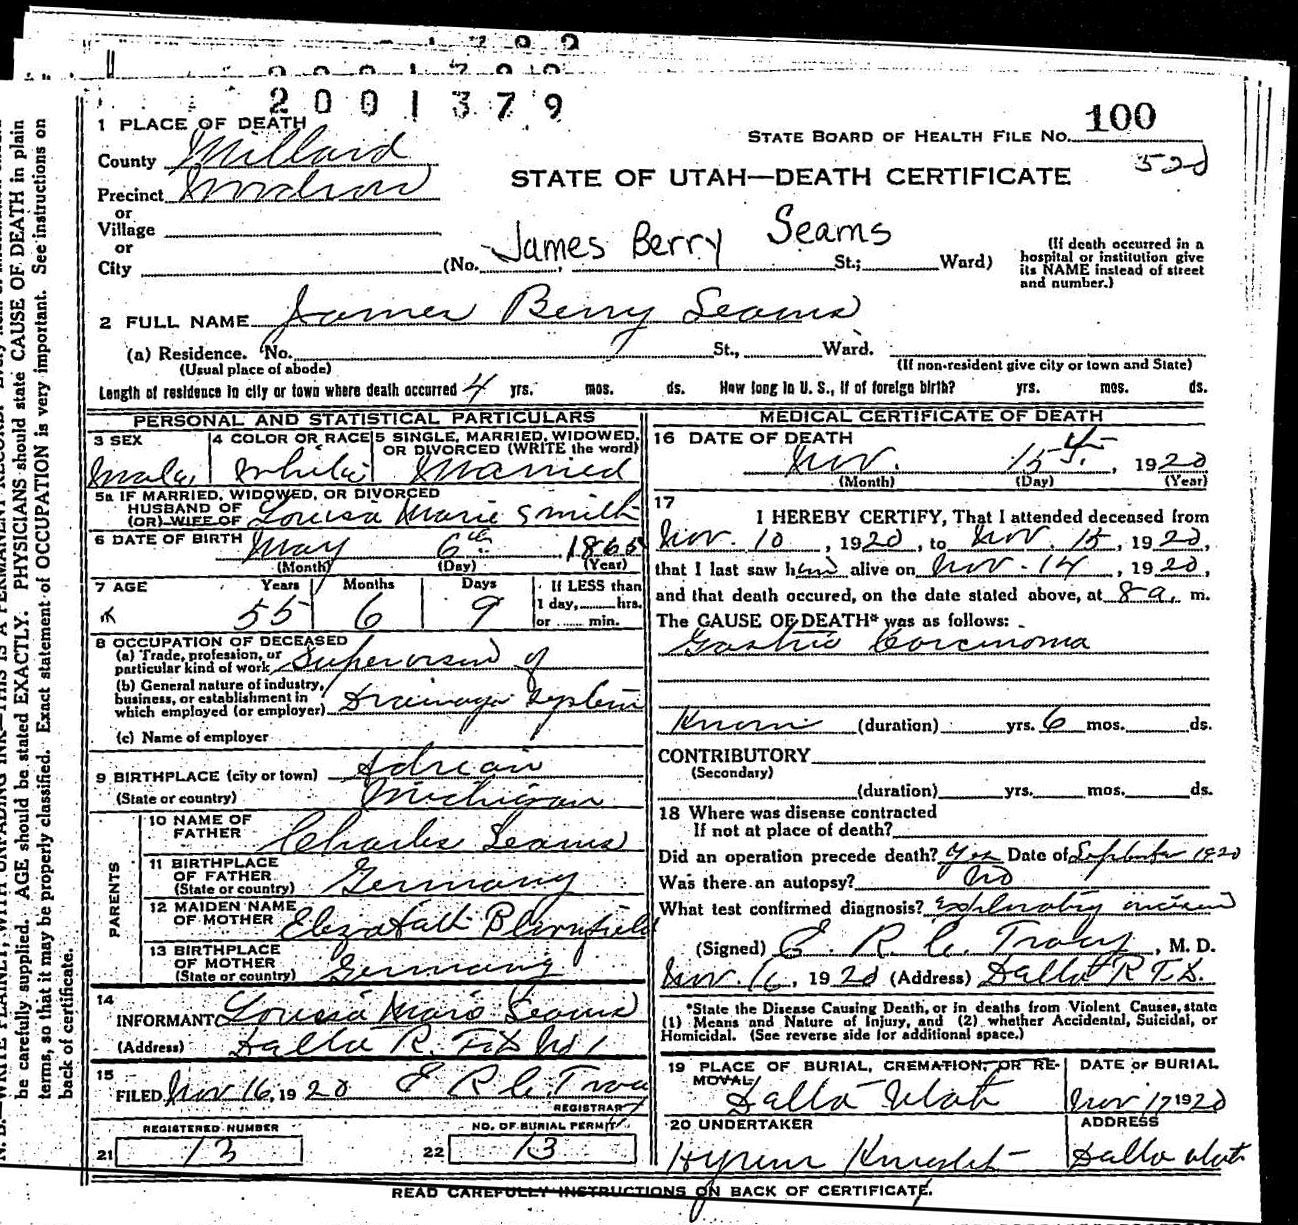 2001379
1 PLACE OF DEATH
STATE BOARD OF HEALTH FILE No. 100
County Millard
520
Precinct
STATE OF UTAH—DEATH CERTIFICATE
or
Village
or
City (No. James Berry Seams St.; Ward)
(If death occurred in a
hospital or institution give
its NAME instead of street
and number.)
2 FULL NAME James Berry Seams
(a) Residence. No. St., Ward.
(Usual place of abode)
(If non-resident give city or town and State)
Length of residence in city or town where death occurred 4 yrs. mos. ds. How long in U. S., if of foreign birth? yrs. mos. ds.
PERSONAL AND STATISTICAL PARTICULARS
3 SEX
Male
4 COLOR OR RACE
White
5 SINGLE, MARRIED, WIDOWED,
OR DIVORCED (WRITE the word)
Married
5a IF MARRIED, WIDOWED, OR DIVORCED
HUSBAND OF
(OR) WIFE OF Louisa Marie Smith
6 DATE OF BIRTH May 6th 1865
(Month) (Day) (Year)
7 AGE Years Months Days If LESS than
1 day, hrs.
or min.
55 6 9
8 OCCUPATION OF DECEASED
(a) Trade, profession, or
particular kind of work Supervisor of
(b) General nature of industry,
business, or establishment in
which employed (or employer) Drainage System
(c) Name of employer
9 BIRTHPLACE (city or town) Adrian
(State or country) Michigan
PARENTS
10 NAME OF
FATHER Charles Seams
11 BIRTHPLACE
OF FATHER
(State or country) Germany
12 MAIDEN NAME
OF MOTHER Elizabeth Blumfield
13 BIRTHPLACE
OF MOTHER
(State or country) Germany
14
INFORMANT Louisa Marie Seams
(Address) Delta R. F. D. No 1
15
FILED Nov 16, 1920 E R C Tracy
REGISTRAR
REGISTERED NUMBER
21 13
NO. OF BURIAL PERMIT
22 13
MEDICAL CERTIFICATE OF DEATH
16 DATE OF DEATH
Nov. 15th, 1920
(Month) (Day) (Year)
17
I HEREBY CERTIFY, That I attended deceased from
Nov. 10, 1920, to Nov. 15, 1920,
that I last saw him alive on Nov. 14, 1920,
and that death occured, on the date stated above, at 8 a. m.
The CAUSE OF DEATH* was as follows:
Gastric Carcinoma
Known (duration) yrs. 6 mos. ds.
CONTRIBUTORY
(Secondary)
(duration) yrs. mos. ds.
18 Where was disease contracted
If not at place of death?
Did an operation precede death? Yes Date of September 1920
Was there an autopsy? No
What test confirmed diagnosis? Exploratory incision
(Signed) E. R. C. Tracy, M. D.
Nov. 16, 1920 (Address) Delta R. F. D.
*State the Disease Causing Death, or in deaths from Violent Causes, state
(1) Means and Nature of Injury, and (2) whether Accidental, Suicidal, or
Homicidal. (See reverse side for additional space.)
19 PLACE OF BURIAL, CREMATION, OR RE-
MOVAL
Delta Utah
DATE OF BURIAL
Nov 17 1920
20 UNDERTAKER
Hyrum Knight
ADDRESS
Delta Utah
READ CAREFULLY INSTRUCTIONS ON BACK OF CERTIFICATE.
be carefully supplied. AGE should be stated EXACTLY. PHYSICIANS should state CAUSE OF DEATH in plain
terms, so that it may be properly classified. Exact statement of OCCUPATION is very important. See instructions on
back of certificate.